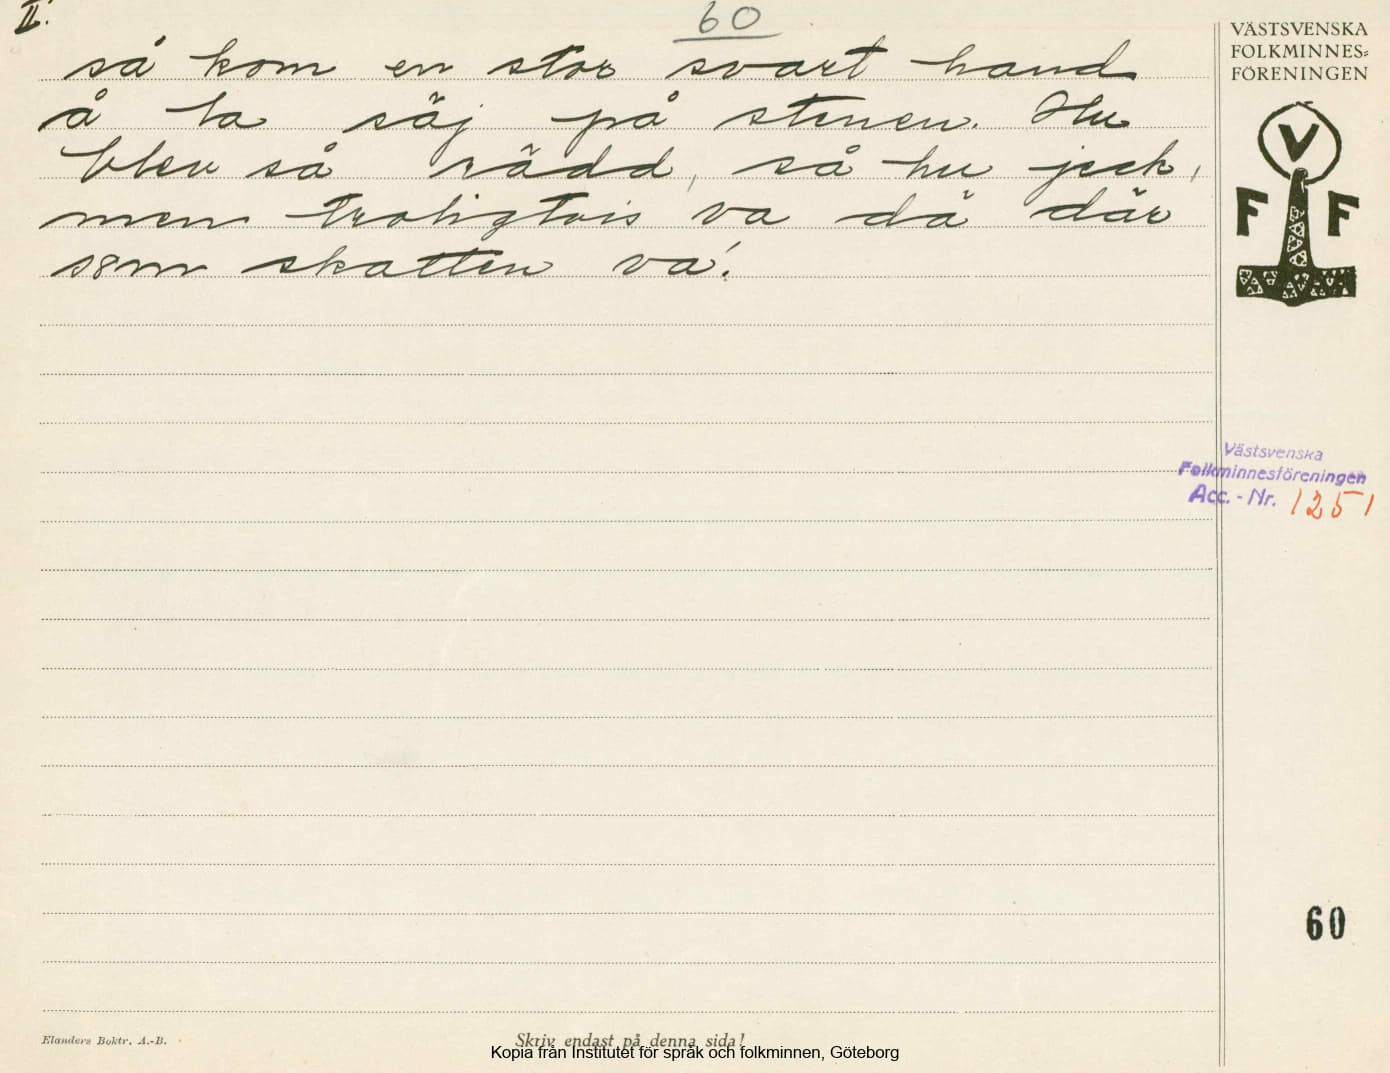 II.
60
så kom en stor svart hand
å la säj på stenen. Hu
blev så rädd, så hu jeck,
men troligtvis va dä där
som skatten va!
VÄSTSVENSKA
FOLKMINNES=
FÖRENINGEN
V
F F
Västsvenska
Folkminnesföreningen
Acc. - Nr. 1251
60
Elanders Boktr. A.-B.
Skriv endast på denna sida!
Kopia från Institutet för språk och folkminnen, Göteborg